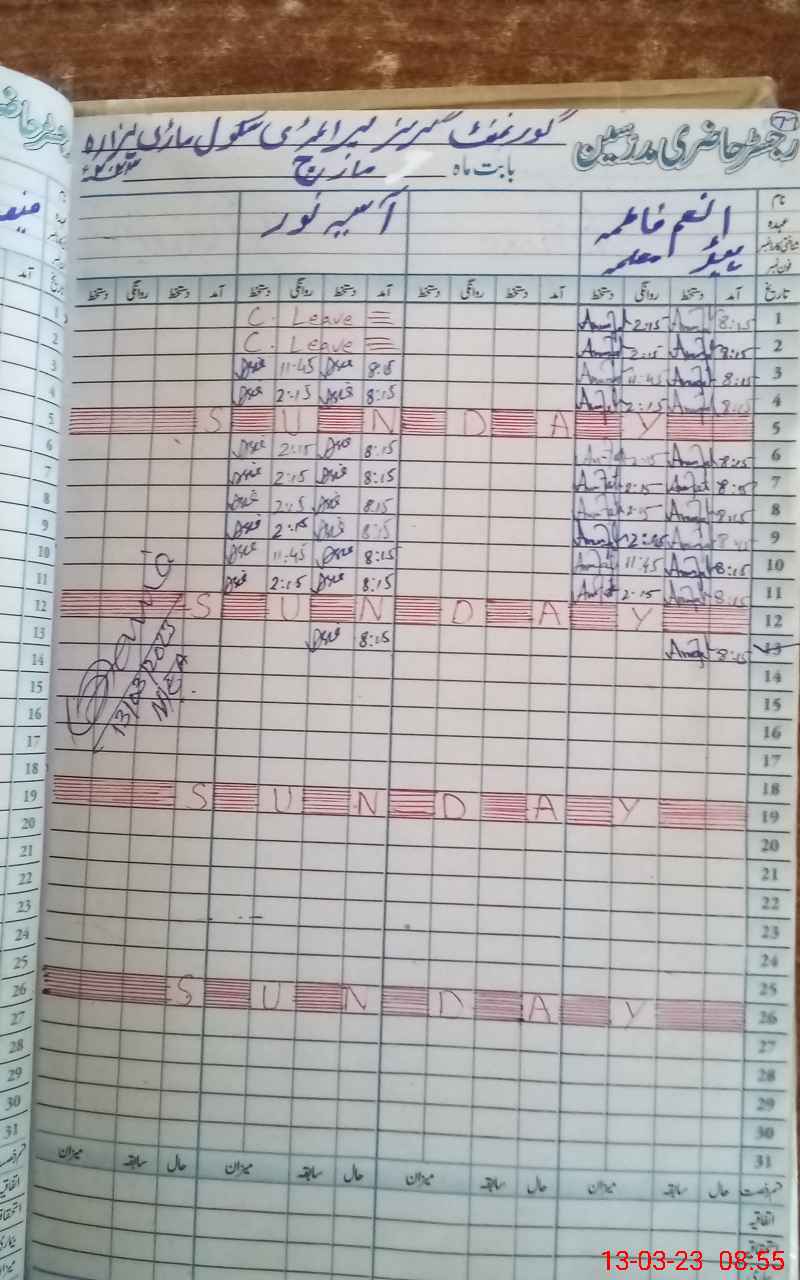 رجسٹر حاضری مدرسین
گورنمنٹ گرلز پرائمری سکول ماڑی ہزارہ
بابت ماہ مارچ ۲۰۲۳ء
نام انعم فاطمہ آسیہ نور
عہدہ ہیڈ معلمہ
شناختی کارڈ نمبر
فون نمبر
تاریخ آمد دستخط روانگی دستخط آمد دستخط روانگی دستخط آمد دستخط روانگی دستخط آمد دستخط روانگی دستخط
1 8:15 2:15 C. Leave
2 8:15 2:15 C. Leave
3 8:15 11:45 8:15 11:45
4 8:15 2:15 8:15 2:15
5 SUNDAY
6 8:15 2:15 8:15 2:15
7 8:15 2:15 8:15 2:15
8 8:15 2:15 8:15 2:15
9 8:15 2:15 8:15 2:15
10 8:15 11:45 8:15 11:45
11 8:15 2:15 8:15 2:15
12 SUNDAY
13 8:15 8:15
13/03/2023
MEA
14
15
16
17
18
19 SUNDAY
20
21
22
23
24
25
26 SUNDAY
27
28
29
30
31
قسم رخصت حال سابقہ میزان حال سابقہ میزان حال سابقہ میزان حال سابقہ میزان
اتفاقیہ
13-03-23 08:55